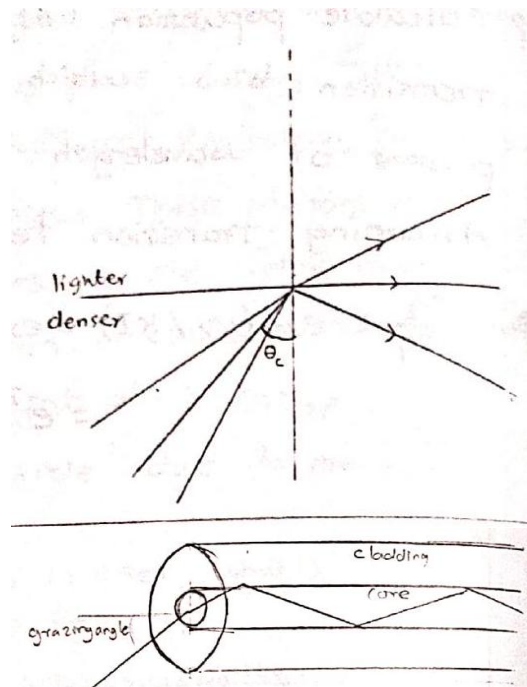 lighter
denser
θc
cladding
core
grazing angle